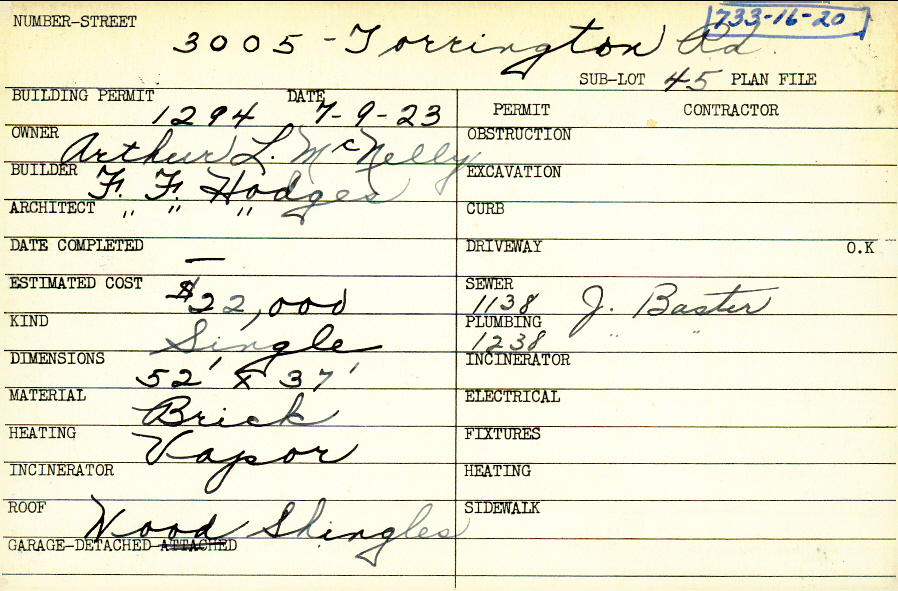 NUMBER-STREET 733-16-20
3005 - Torrington Rd.
SUB-LOT 45 PLAN FILE
BUILDING PERMIT 1294 DATE 7-9-23
PERMIT CONTRACTOR
OWNER Arthur L. McNelly
OBSTRUCTION
BUILDER F. F. Hodges
EXCAVATION
ARCHITECT " " "
CURB
DATE COMPLETED —
DRIVEWAY O.K
ESTIMATED COST $22,000
SEWER 1138 J. Baster
KIND Single
PLUMBING 1238 " "
DIMENSIONS 52' x 37'
INCINERATOR
MATERIAL Brick
ELECTRICAL
HEATING Vapor
FIXTURES
INCINERATOR
HEATING
ROOF Wood Shingles
SIDEWALK
GARAGE-DETACHED-ATTACHED